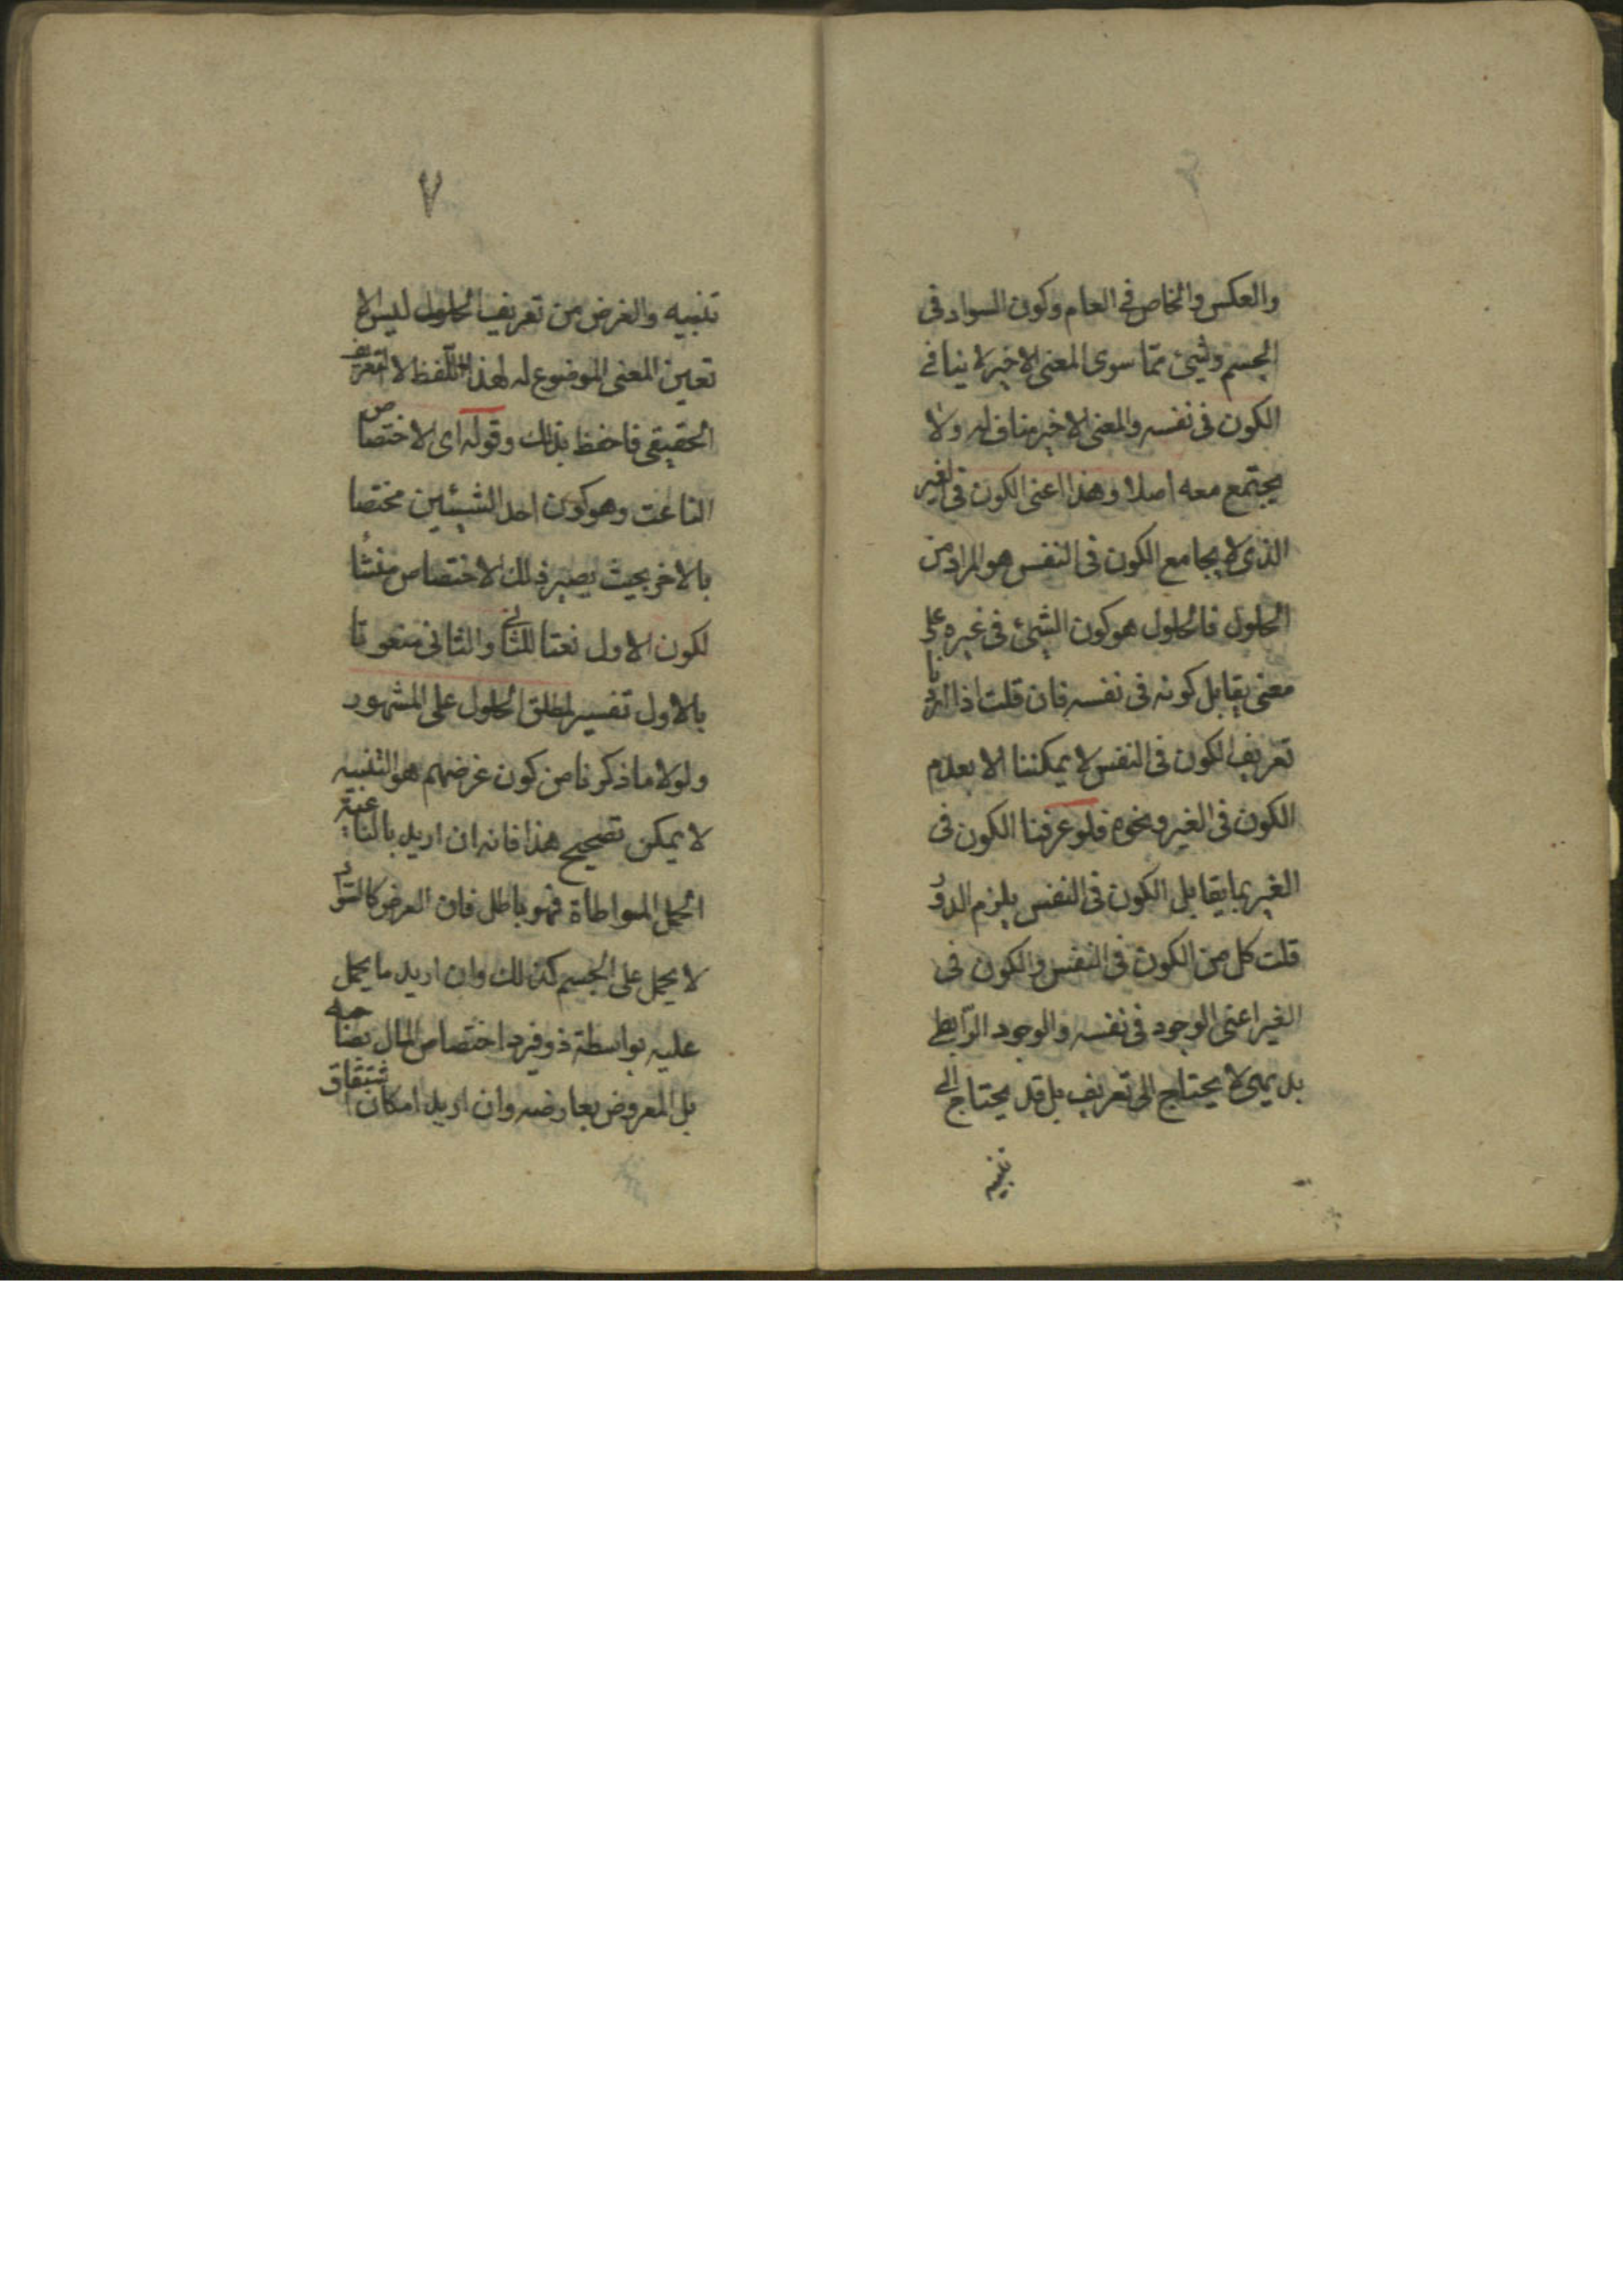 والعكس والخاص في العام وكون السواد فى
الجسم وشيئ مما سوى المعنى الاخير لا ينافي
الكون فى نفسه والمعنى الاخير مناف له ولا
يجتمع معه اصلا وهذا اعنى الكون فى الغير
الذى لا يجامع الكون فى النفس هو المراد من
الحلول فالحلول هو كون الشيئ فى غيره على
معنى يقابل كونه فى نفسه فان قلت اذا اردنا
تعريف الكون فى النفس لا يمكننا الا بعدم
الكون فى الغير ونحوه فلو عرفنا الكون فى
الغير بما يقابل الكون فى النفس يلزم الدور
قلت كل من الكون فى النفس والكون فى
الغير اعنى الوجود فى نفسه والوجود الرّابطى
بديهى لا يحتاج الى تعريف بل قد يحتاج الى
تنبيه
٧
تنبيه والغرض من تعريف الحلول ليس الا
تعين المعنى الموضوع له لهذا اللّفظ لا التعريف
الحقيقى فاحفظ بذلك وقوله اى الاختصاص
الناعت وهو كون احد الشيئين مختصا
بالاخر بحيث يصير ذلك الاختصاص منشأ
لكون الاول نعتا للثانى والثانى منعوتا
بالاول تفسير لمطلق الحلول على المشهور
ولولا ما ذكرنا من كون غرضهم هو التنبيه
لا يمكن تصحيح هذا فانه ان اريد بالناعتية
الحمل المواطأة فهو باطل فان العرض كالسّواد
لا يحمل على الجسم كذلك وان اريد ما يحمل
عليه بواسطة ذو فيرد اختصاص المال بصاحبه
بل المعروض بعارضه وان اريد امكان اشتقاق